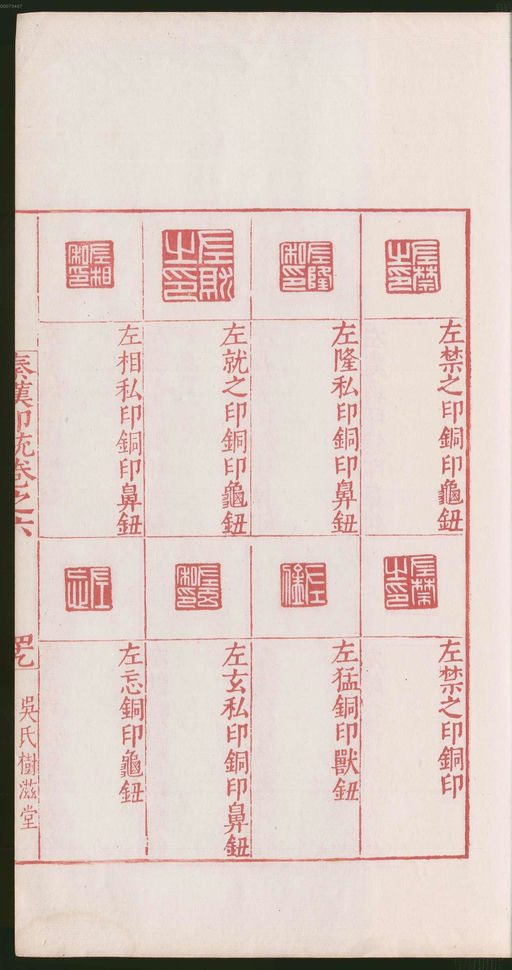 左禁之印銅印龜鈕
左隆私印銅印鼻鈕
左就之印銅印龜鈕
左相私印銅印鼻鈕
左禁之印銅印
左猛銅印獸鈕
左玄私印銅印鼻鈕
左忘銅印龜鈕
秦漢印統卷之六
吳氏樹滋堂